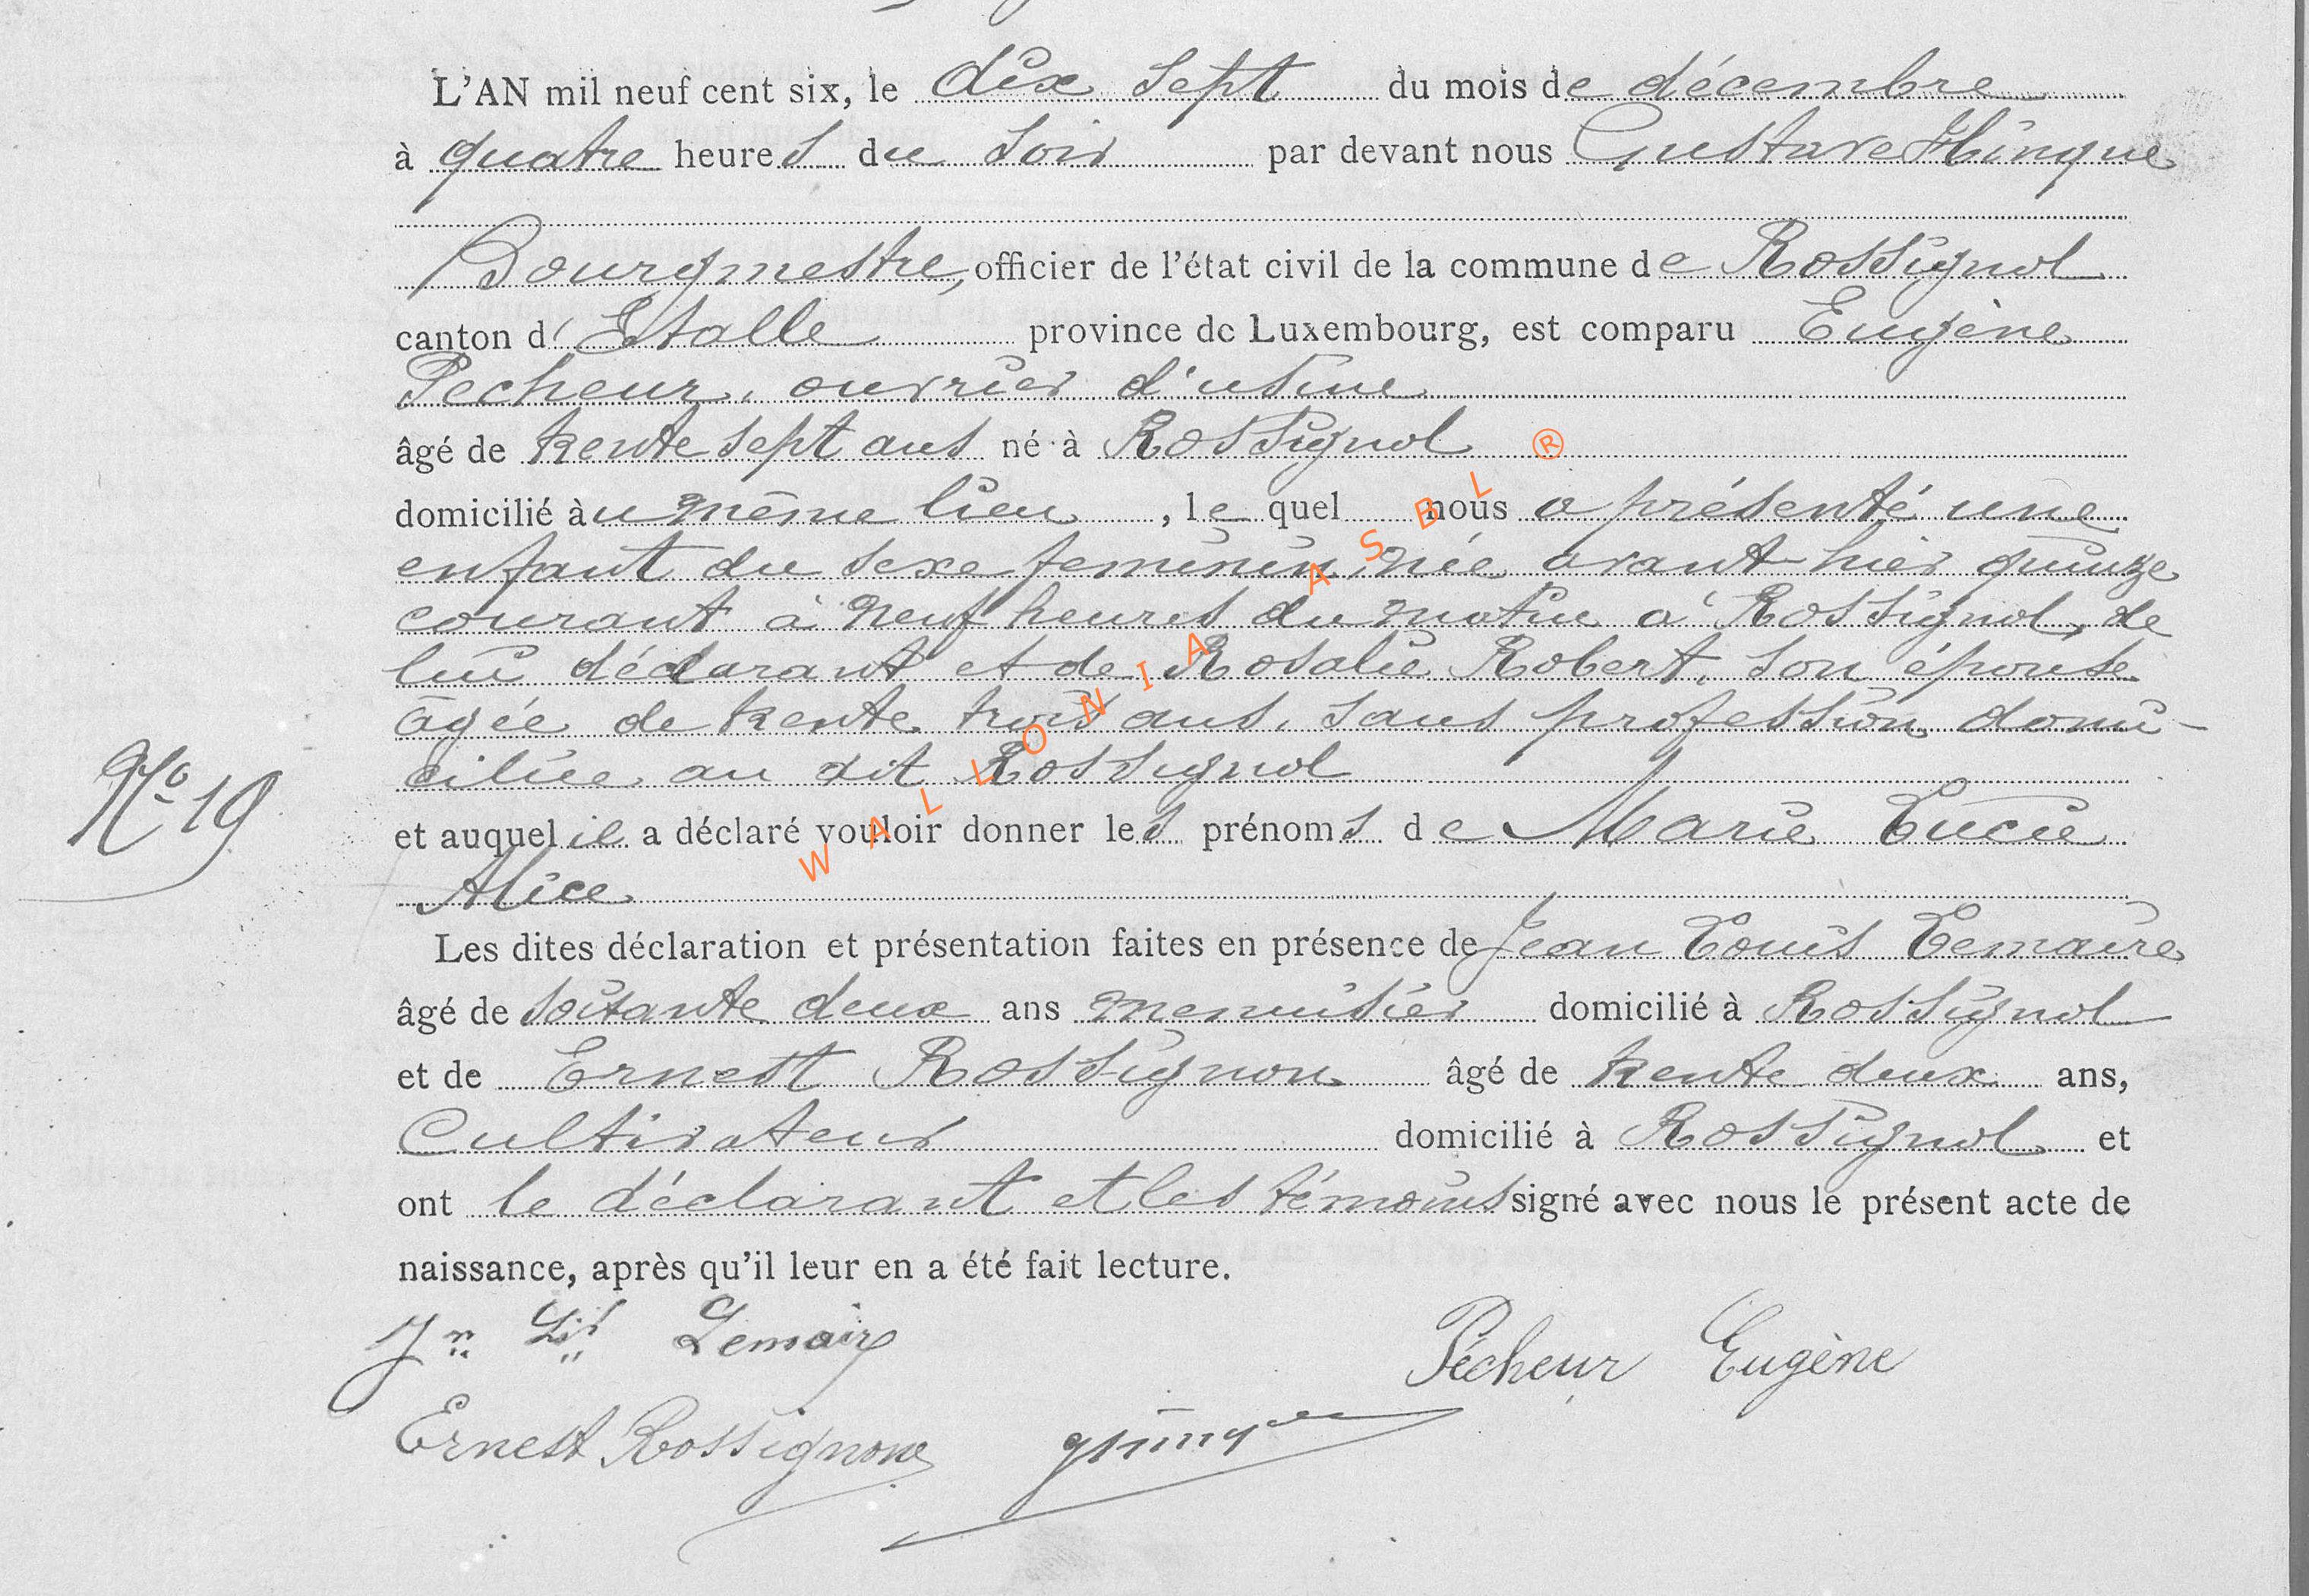 L'AN mil neuf cent six, le dix sept du mois de décembre
à quatre heures du soir par devant nous Gustave Hinque
Bourgmestre, officier de l'état civil de la commune de Rossignol
canton d'Etalle province de Luxembourg, est comparu Eugène
Pecheur, ouvrier d'usine
âgé de trente sept ans né à Rossignol
domicilié àu même lieu, le quel nous a présenté une
enfant du sexe feminin, née avant-hier quinze
courant à neuf heures du matin a Rossignol, de
lui déclarant et de Rosalie Robert, son épouse
âgée de trente trois ans, sans profession domi-
ciliée au dit Rossignol
Nº 19
et auquel il a déclaré vouloir donner les prénoms de Marie Lucie
Alice
Les dites déclaration et présentation faites en présence de Jean Louis Lemaire
âgé de soixante deux ans menuisier domicilié à Rossignol
et de Ernest Rossignon âgé de trente deux ans,
Cultivateur domicilié à Rossignol et
ont le déclarant et les témoins signé avec nous le présent acte de
naissance, après qu'il leur en a été fait lecture.
Jn Ls Lemaire
Pécheur Eugène
Ernest Rossignon
WALLONIA ASBL ®